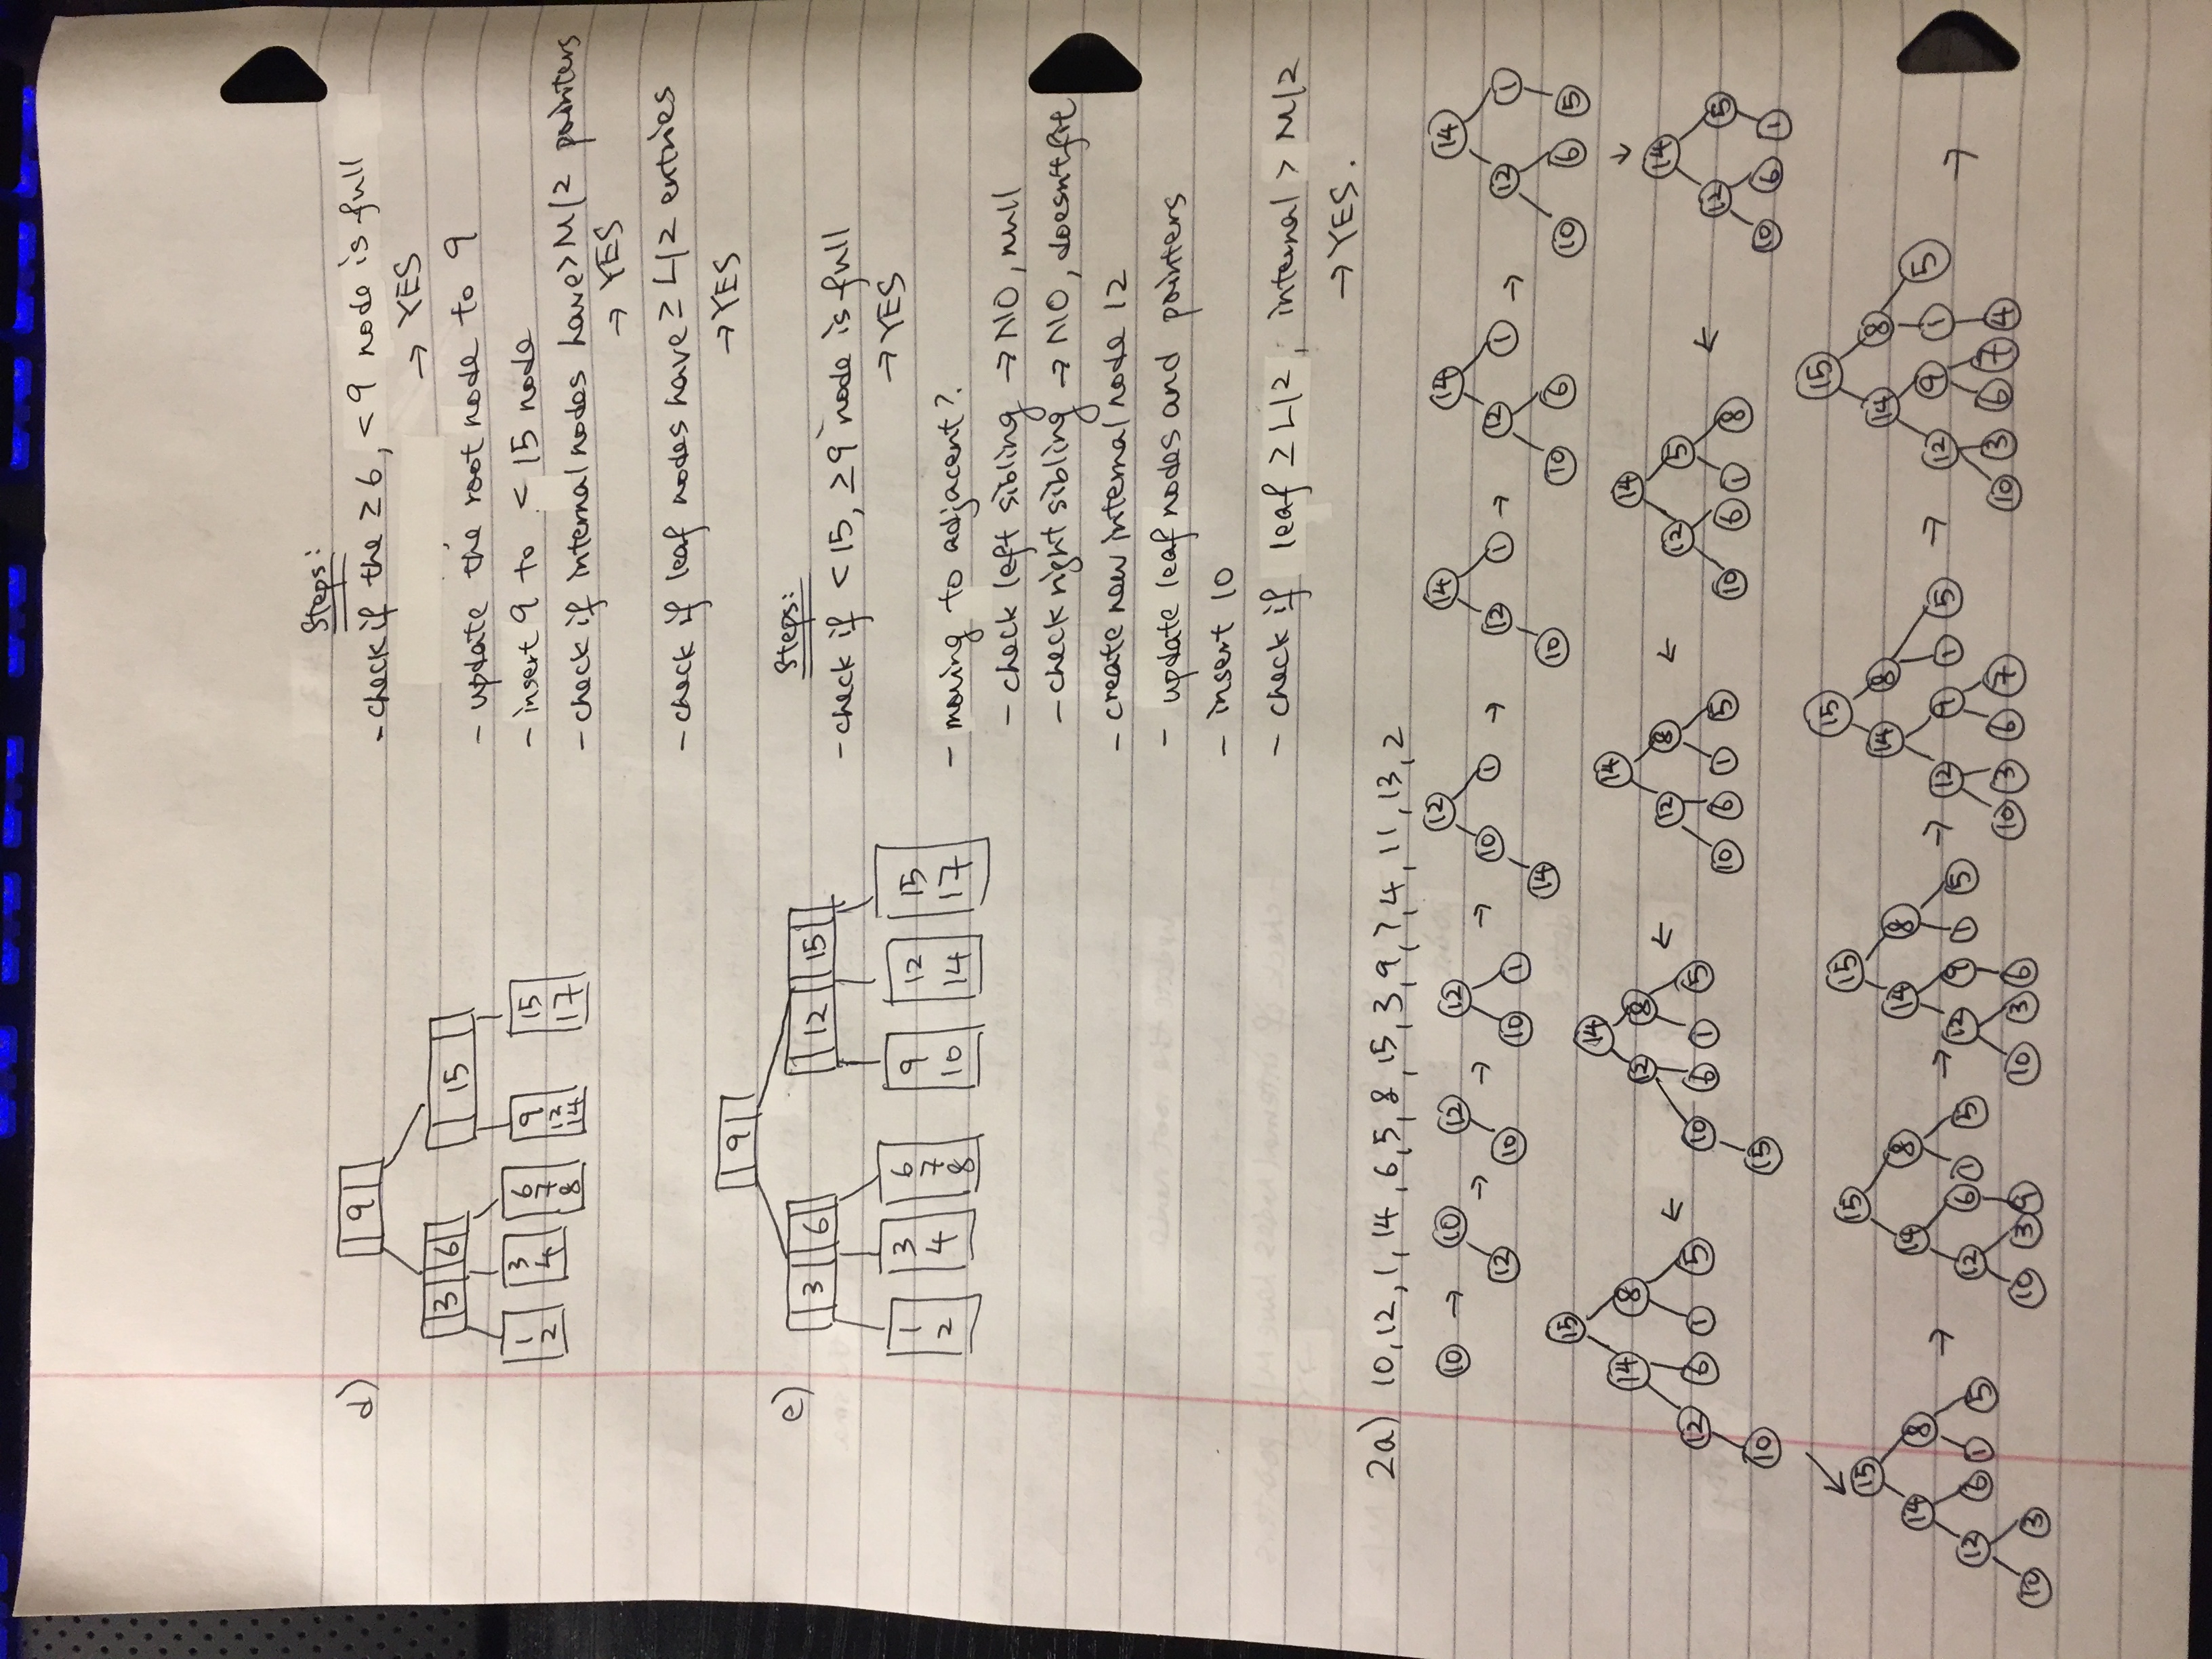 d)
9
3 6 15
1 3 6 9 15
2 4 7 12 17
8 14
Steps:
- check if the ≥ 6, < 9 node is full
→ YES
- update the root node to 9
- insert 9 to < 15 node
- check if internal nodes have > M/2 pointers
→ YES
- check if leaf nodes have ≥ L/2 entries
→ YES
e)
9
3 6 12 15
1 3 6 9 12 15
2 4 7 10 14 17
8
Steps:
- check if < 15, ≥ 9 node is full
→ YES
- moving to adjacent?
- check left sibling → NO, null
- check right sibling → NO, doesn't fit
- create new internal node 12
- update leaf nodes and pointers
- insert 10
- check if leaf ≥ L/2, internal > M/2
→ YES.
2a) 10, 12, 1, 14, 6, 5, 8, 15, 3, 9, 7, 4, 11, 13, 2
10 → 10 → 12 → 12 → 12 → 14 → 14 → 14
12 10 10 1 10 1 12 1 12 1 12 1
14 10 10 6 10 6 5
↓
15 ← 14 ← 14 ← 14 ← 14
14 8 12 8 12 8 12 5 12 5
12 6 1 5 10 6 1 5 10 6 1 5 10 6 1 8 10 6 1
10 15
↙
15 → 15 → 15 → 15 → 15 →
14 8 14 8 14 8 14 8 14 8
12 6 1 5 12 6 1 5 12 9 1 5 12 9 1 5 12 9 1 5
10 3 10 3 9 10 3 6 10 3 6 7 10 3 6 7 4